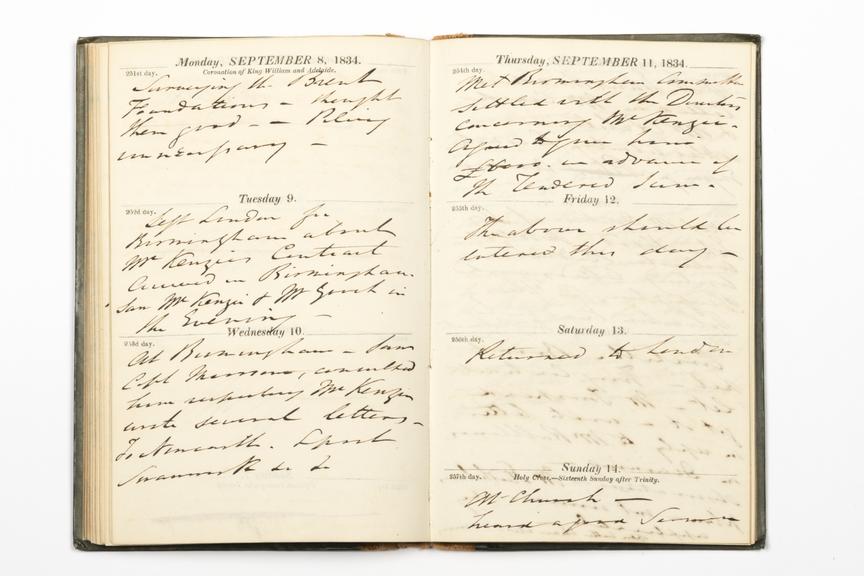 Monday, SEPTEMBER 8, 1834.
251st day.
Coronation of King William and Adelaide.
Surveying the Brent
Foundations – thought
them good – – Piling
unnecessary –
Tuesday 9.
252d day.
Left London for
Birmingham about
Mr Kenzies Contract
Arrived in Birmingham.
Saw Mr Kenzie & Mr Gooch in
the Evening –
Wednesday 10.
253d day.
At Birmingham – Saw
Capt Moorsom, consulted
him respecting Mr Kenzie
wrote several letters –
To Newcastle. Lpool
&c &c
Thursday, SEPTEMBER 11, 1834.
254th day.
Met Birmingham Committee
settled with the Directors
concerning Mr Kenzie.
Agreed to give him
in advance of
the Tendered Sum.
Friday 12.
255th day.
The above should be
entered this day –
Saturday 13.
256th day.
Returned to London
Sunday 14.
257th day.
Holy Cross.—Sixteenth Sunday after Trinity.
At Church –
heard a good Sermon